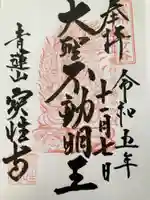 奉拝
令和五年
十一月七日
大聖不動明王
青蓮山
寳性寺